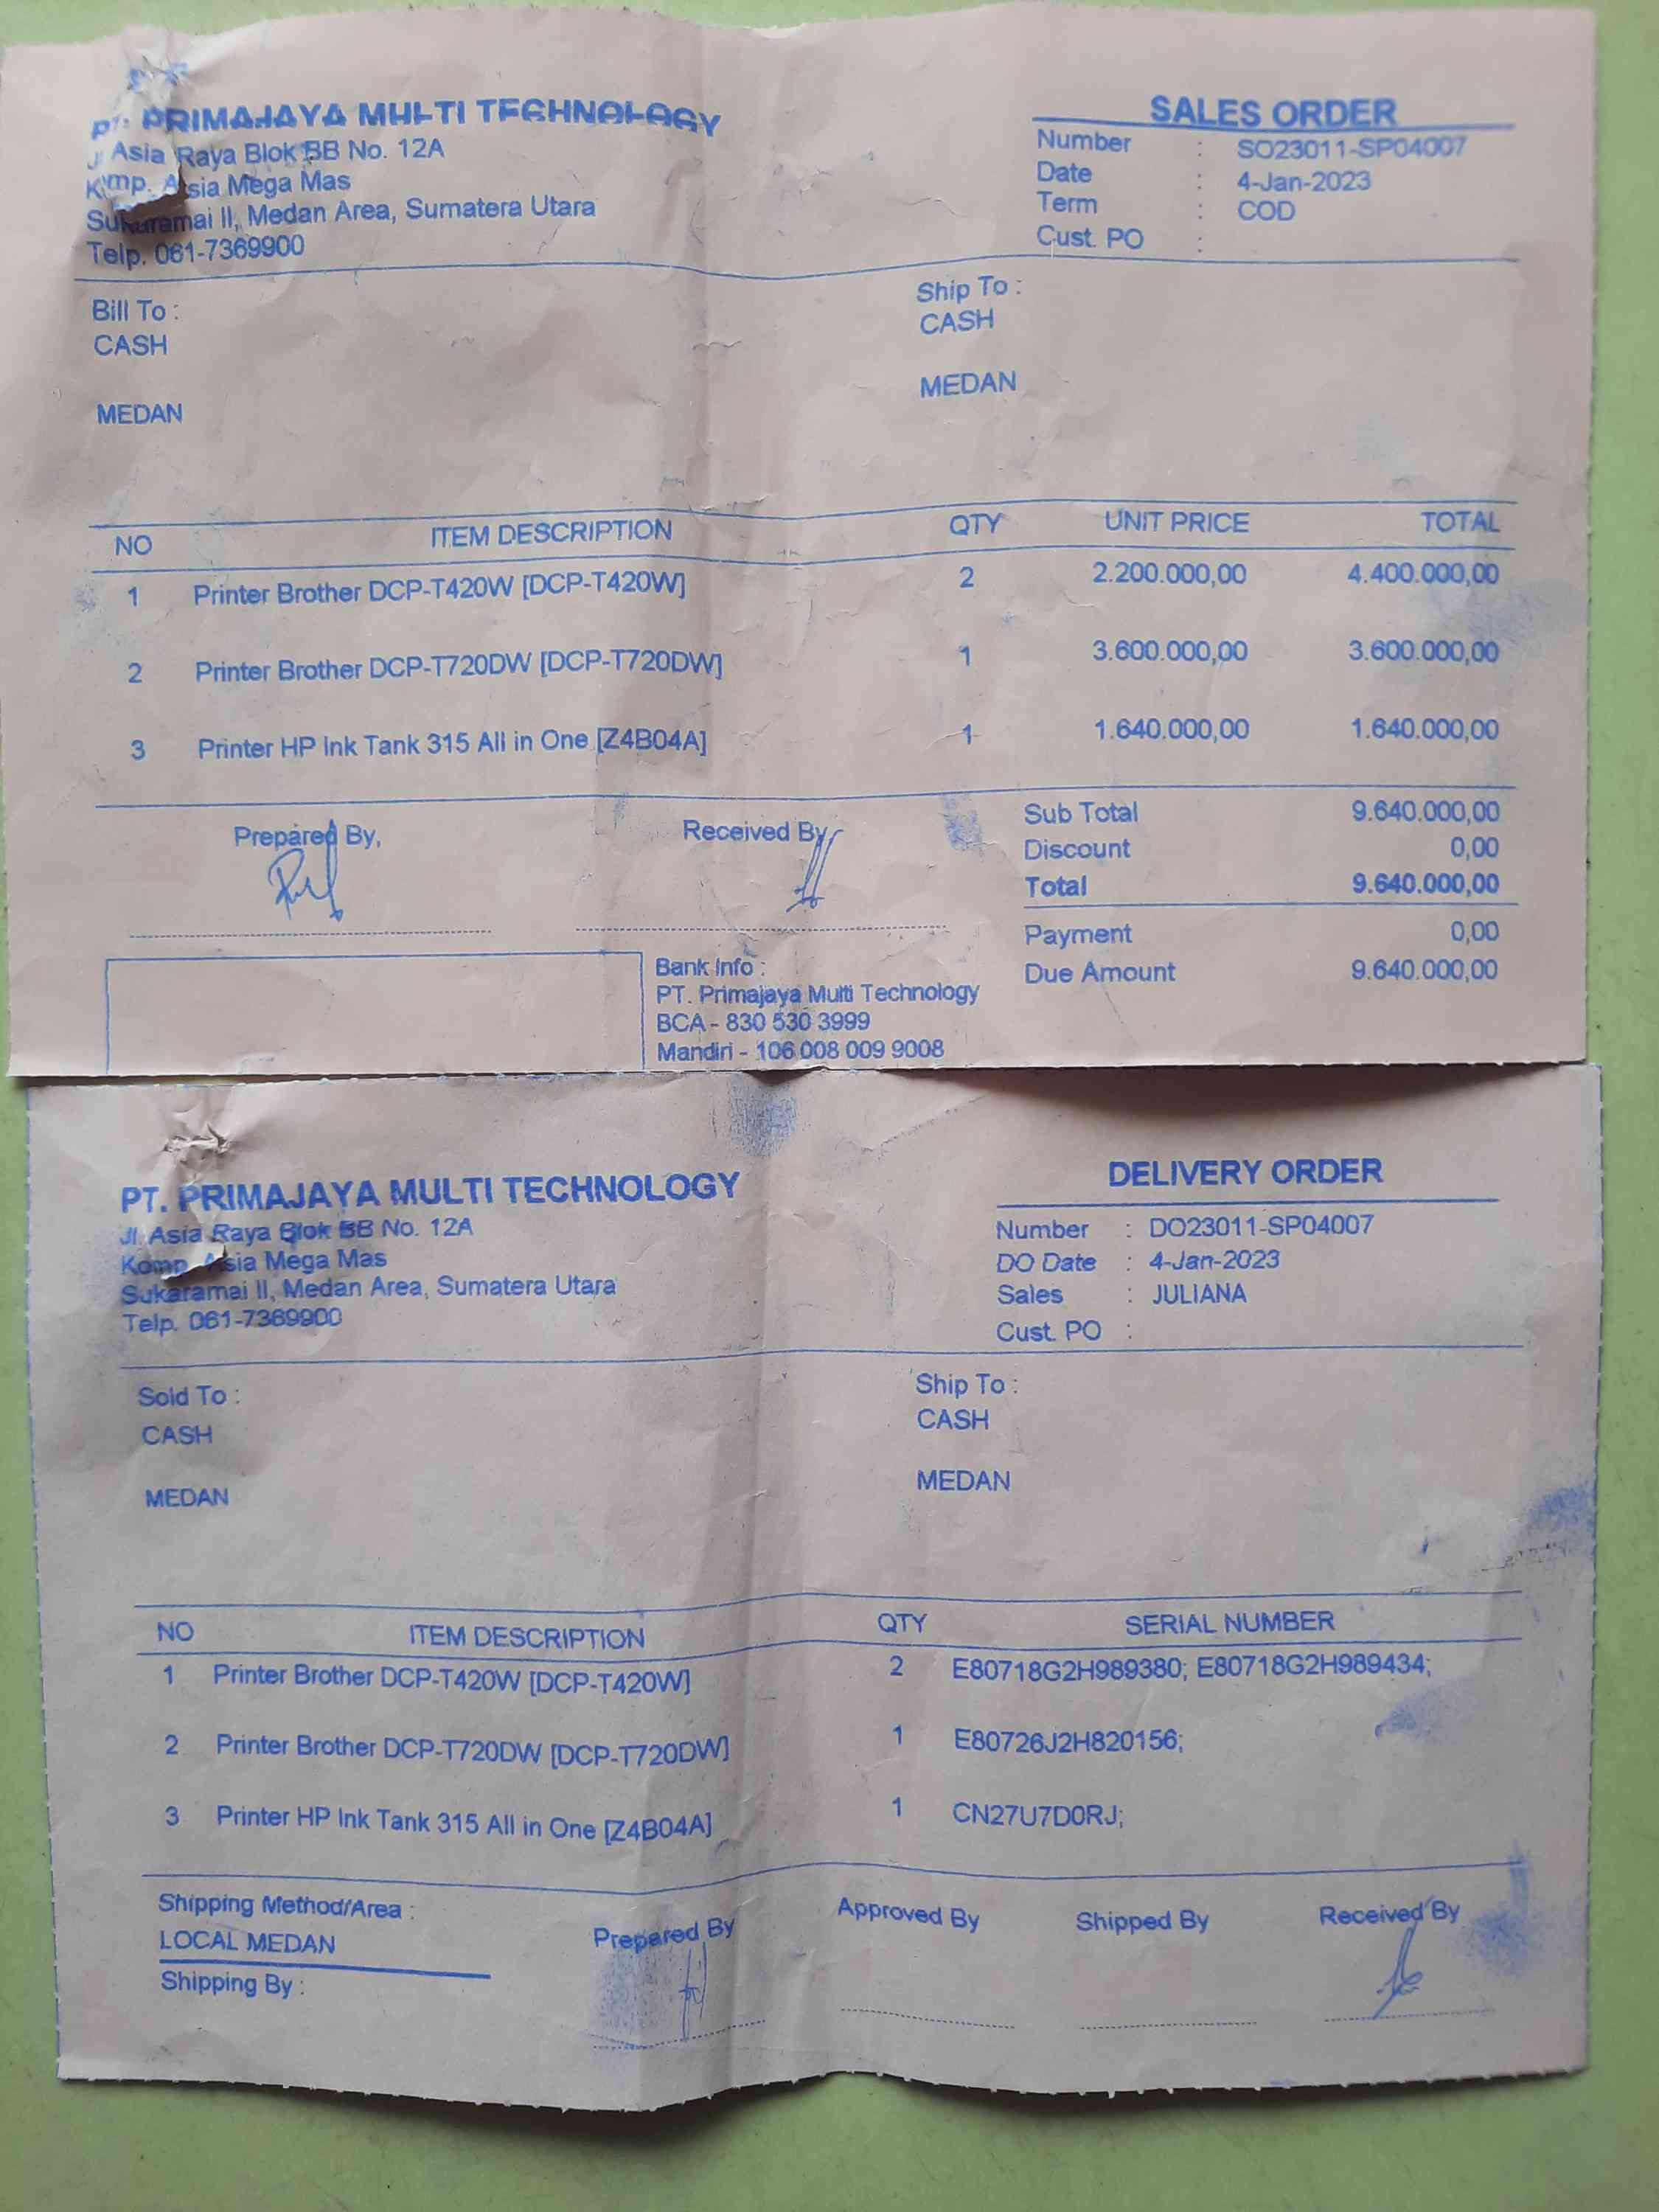 PT. PRIMAJAYA MULTI TECHNOLOGY
Jl Asia Raya Blok BB No. 12A
Komp. Asia Mega Mas
Sukaramai II, Medan Area, Sumatera Utara
Telp. 061-7369900
SALES ORDER
Number : SO23011-SP04007
Date : 4-Jan-2023
Term : COD
Cust. PO :
Bill To :
CASH
MEDAN
Ship To :
CASH
MEDAN
NO ITEM DESCRIPTION QTY UNIT PRICE TOTAL
1 Printer Brother DCP-T420W [DCP-T420W] 2 2.200.000,00 4.400.000,00
2 Printer Brother DCP-T720DW [DCP-T720DW] 1 3.600.000,00 3.600.000,00
3 Printer HP Ink Tank 315 All in One [Z4B04A] 1 1.640.000,00 1.640.000,00
Prepared By,
Received By
Sub Total 9.640.000,00
Discount 0,00
Total 9.640.000,00
Payment 0,00
Due Amount 9.640.000,00
Bank Info :
PT. Primajaya Multi Technology
BCA - 830 530 3999
Mandiri - 106 008 009 9008
PT. PRIMAJAYA MULTI TECHNOLOGY
Jl. Asia Raya Blok BB No. 12A
Komp. Asia Mega Mas
Sukaramai II, Medan Area, Sumatera Utara
Telp. 061-7369900
DELIVERY ORDER
Number : DO23011-SP04007
DO Date : 4-Jan-2023
Sales : JULIANA
Cust. PO :
Sold To :
CASH
MEDAN
Ship To :
CASH
MEDAN
NO ITEM DESCRIPTION QTY SERIAL NUMBER
1 Printer Brother DCP-T420W [DCP-T420W] 2 E80718G2H989380; E80718G2H989434;
2 Printer Brother DCP-T720DW [DCP-T720DW] 1 E80726J2H820156;
3 Printer HP Ink Tank 315 All in One [Z4B04A] 1 CN27U7D0RJ;
Shipping Method/Area :
LOCAL MEDAN
Shipping By :
Prepared By
Approved By
Shipped By
Received By